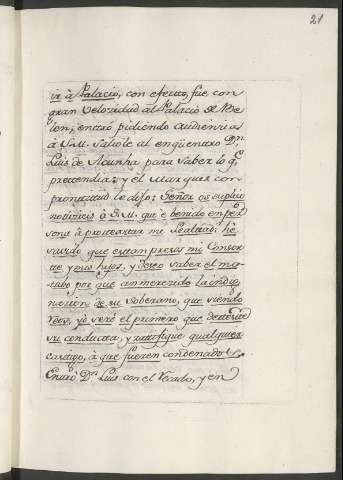 21
ir à Palacio, con efecto, fue con
gran velocidad al Palacio de Be-
len; entró pidiendo audiencia
à S.M. Saliole al enqüentro Dn.
Luis de Acunha para saber lo qe.
pretendia; y el Marques con
promtitud le dijo: Señor os suplico
notizieis à S.M. que è benido en per-
sona à protestar mi Lealtad: he
savido que estan presos mi Consor-
te, y mis hijos, y deseo saber el mo-
tibo por que an merecido la indig-
nacion de su soberano, que siendo
Reos, yo seré el primero que deteste
su conducta, y ratifique qualquier
castigo, à que fueren condenados.
Entró Dn. Luis con el recado, y en